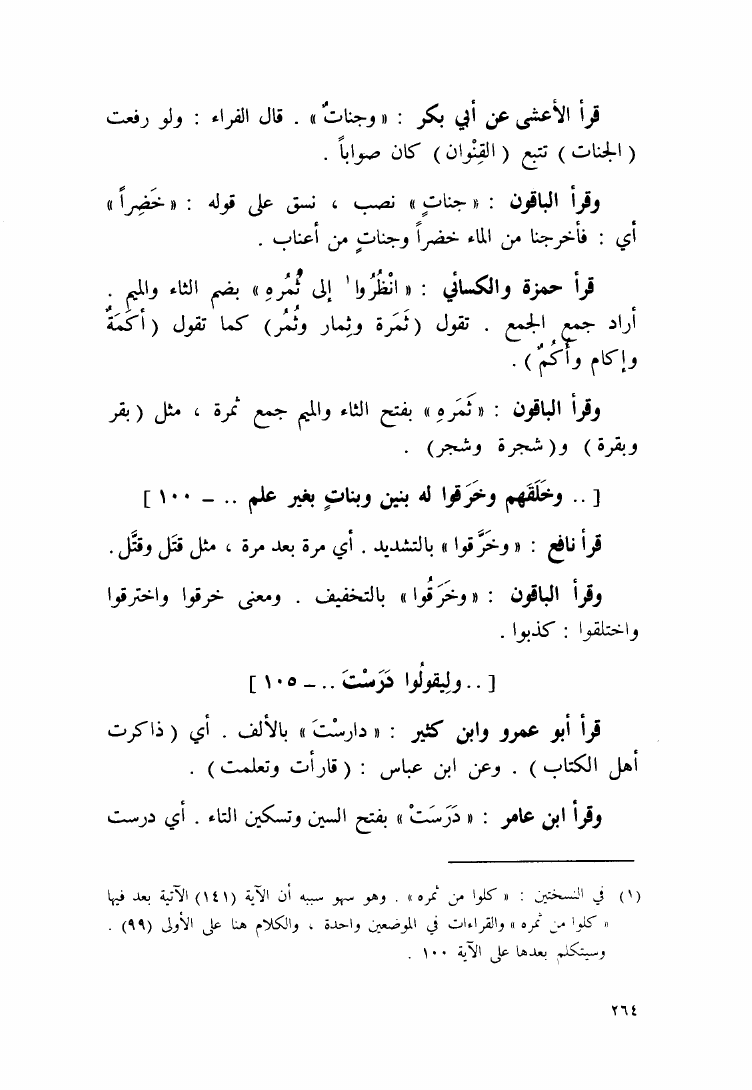 قرأ الأعشى عن أبي بكر : « وجناتٌ » . قال الفراء : ولو رفعت
( الجنات ) تتبع ( القِنْوان ) كان صواباً .
وقرأ الباقون : « جناتٍ » نصب ، نسق على قوله : « خَضِراً »
أي : فأخرجنا من الماء خضراً وجناتٍ من أعناب .
قرأ حمزة والكسائي : « انْظُرُوا ¹ إلى ثُمُرهِ » بضم الثاء والميم .
أراد جمع الجمع . تقول ( ثَمَرة وثِمار وثُمُر ) كما تقول ( أكَمَةٌ
وإكام وأُكُمٌ ) .
وقرأ الباقون : « ثَمَرهِ » بفتح الثاء والميم جمع ثمرة ، مثل ( بقر
وبقرة ) و( شجرة وشجر ) .
[ .. وخَلَقَهم وخَرَقوا له بنين وبناتٍ بغير علم .. ــ ١٠٠ ]
قرأ نافع : « وخَرَّقوا » بالتشديد . أي مرة بعد مرة ، مثل قتَل وقتَّل .
وقرأ الباقون : « وخَرَقُوا » بالتخفيف . ومعنى خرقوا واخترقوا
واختلقوا : كذبوا .
[ .. ولِيقولُوا دَرَسْتَ .. ــ ١٠٥ ]
قرأ أبو عمرو وابن كثير : « دارسْتَ » بالألف . أي ( ذاكرت
أهل الكتاب ) . وعن ابن عباس : ( قارأت وتعلمت ) .
وقرأ ابن عامر : « دَرَسَتْ » بفتح السين وتسكين التاء . أي درست
(١) في النسختين : « كلوا من ثمره » . وهو سهو سببه أن الآية (١٤١) الآتية بعد فيها
« كلوا من ثمره » والقراءات في الموضعين واحدة ، والكلام هنا على الأولى (٩٩) .
وسيتكلم بعدها على الآية ١٠٠ .
٢٦٤